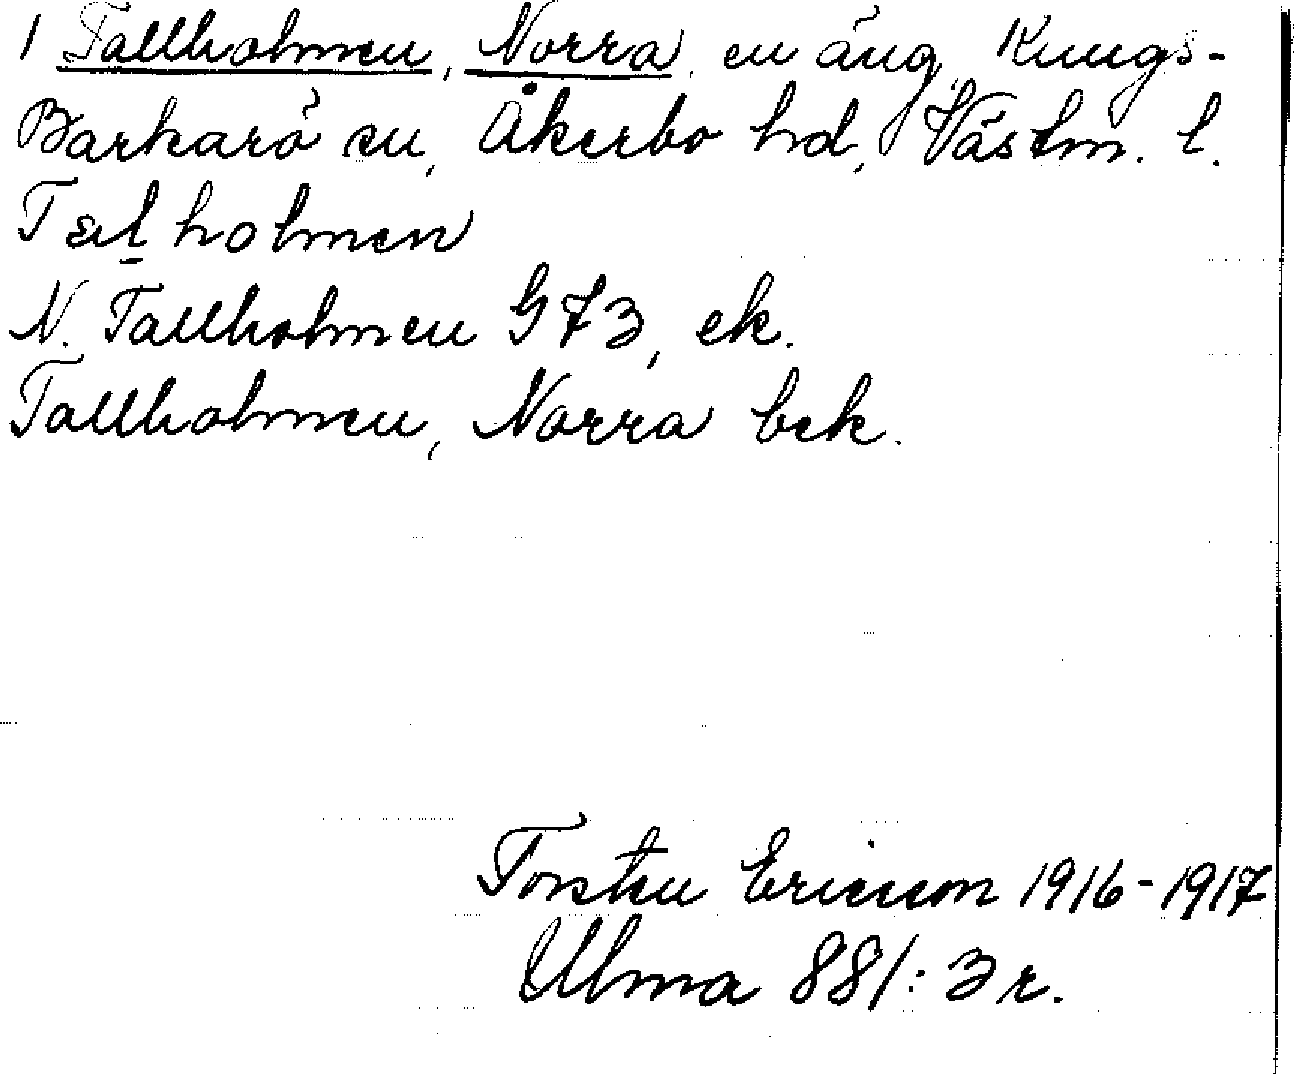 1 Tallholmen, Norra, en äng, Kungs-
Barkarö sn, Åkerbo hd, Västm. l.
Talholmen
N. Tallholmen G73, ek.
Tallholmen, Norra bek.
Torsten Ericson 1916-1917
Ulma 881:3 r.